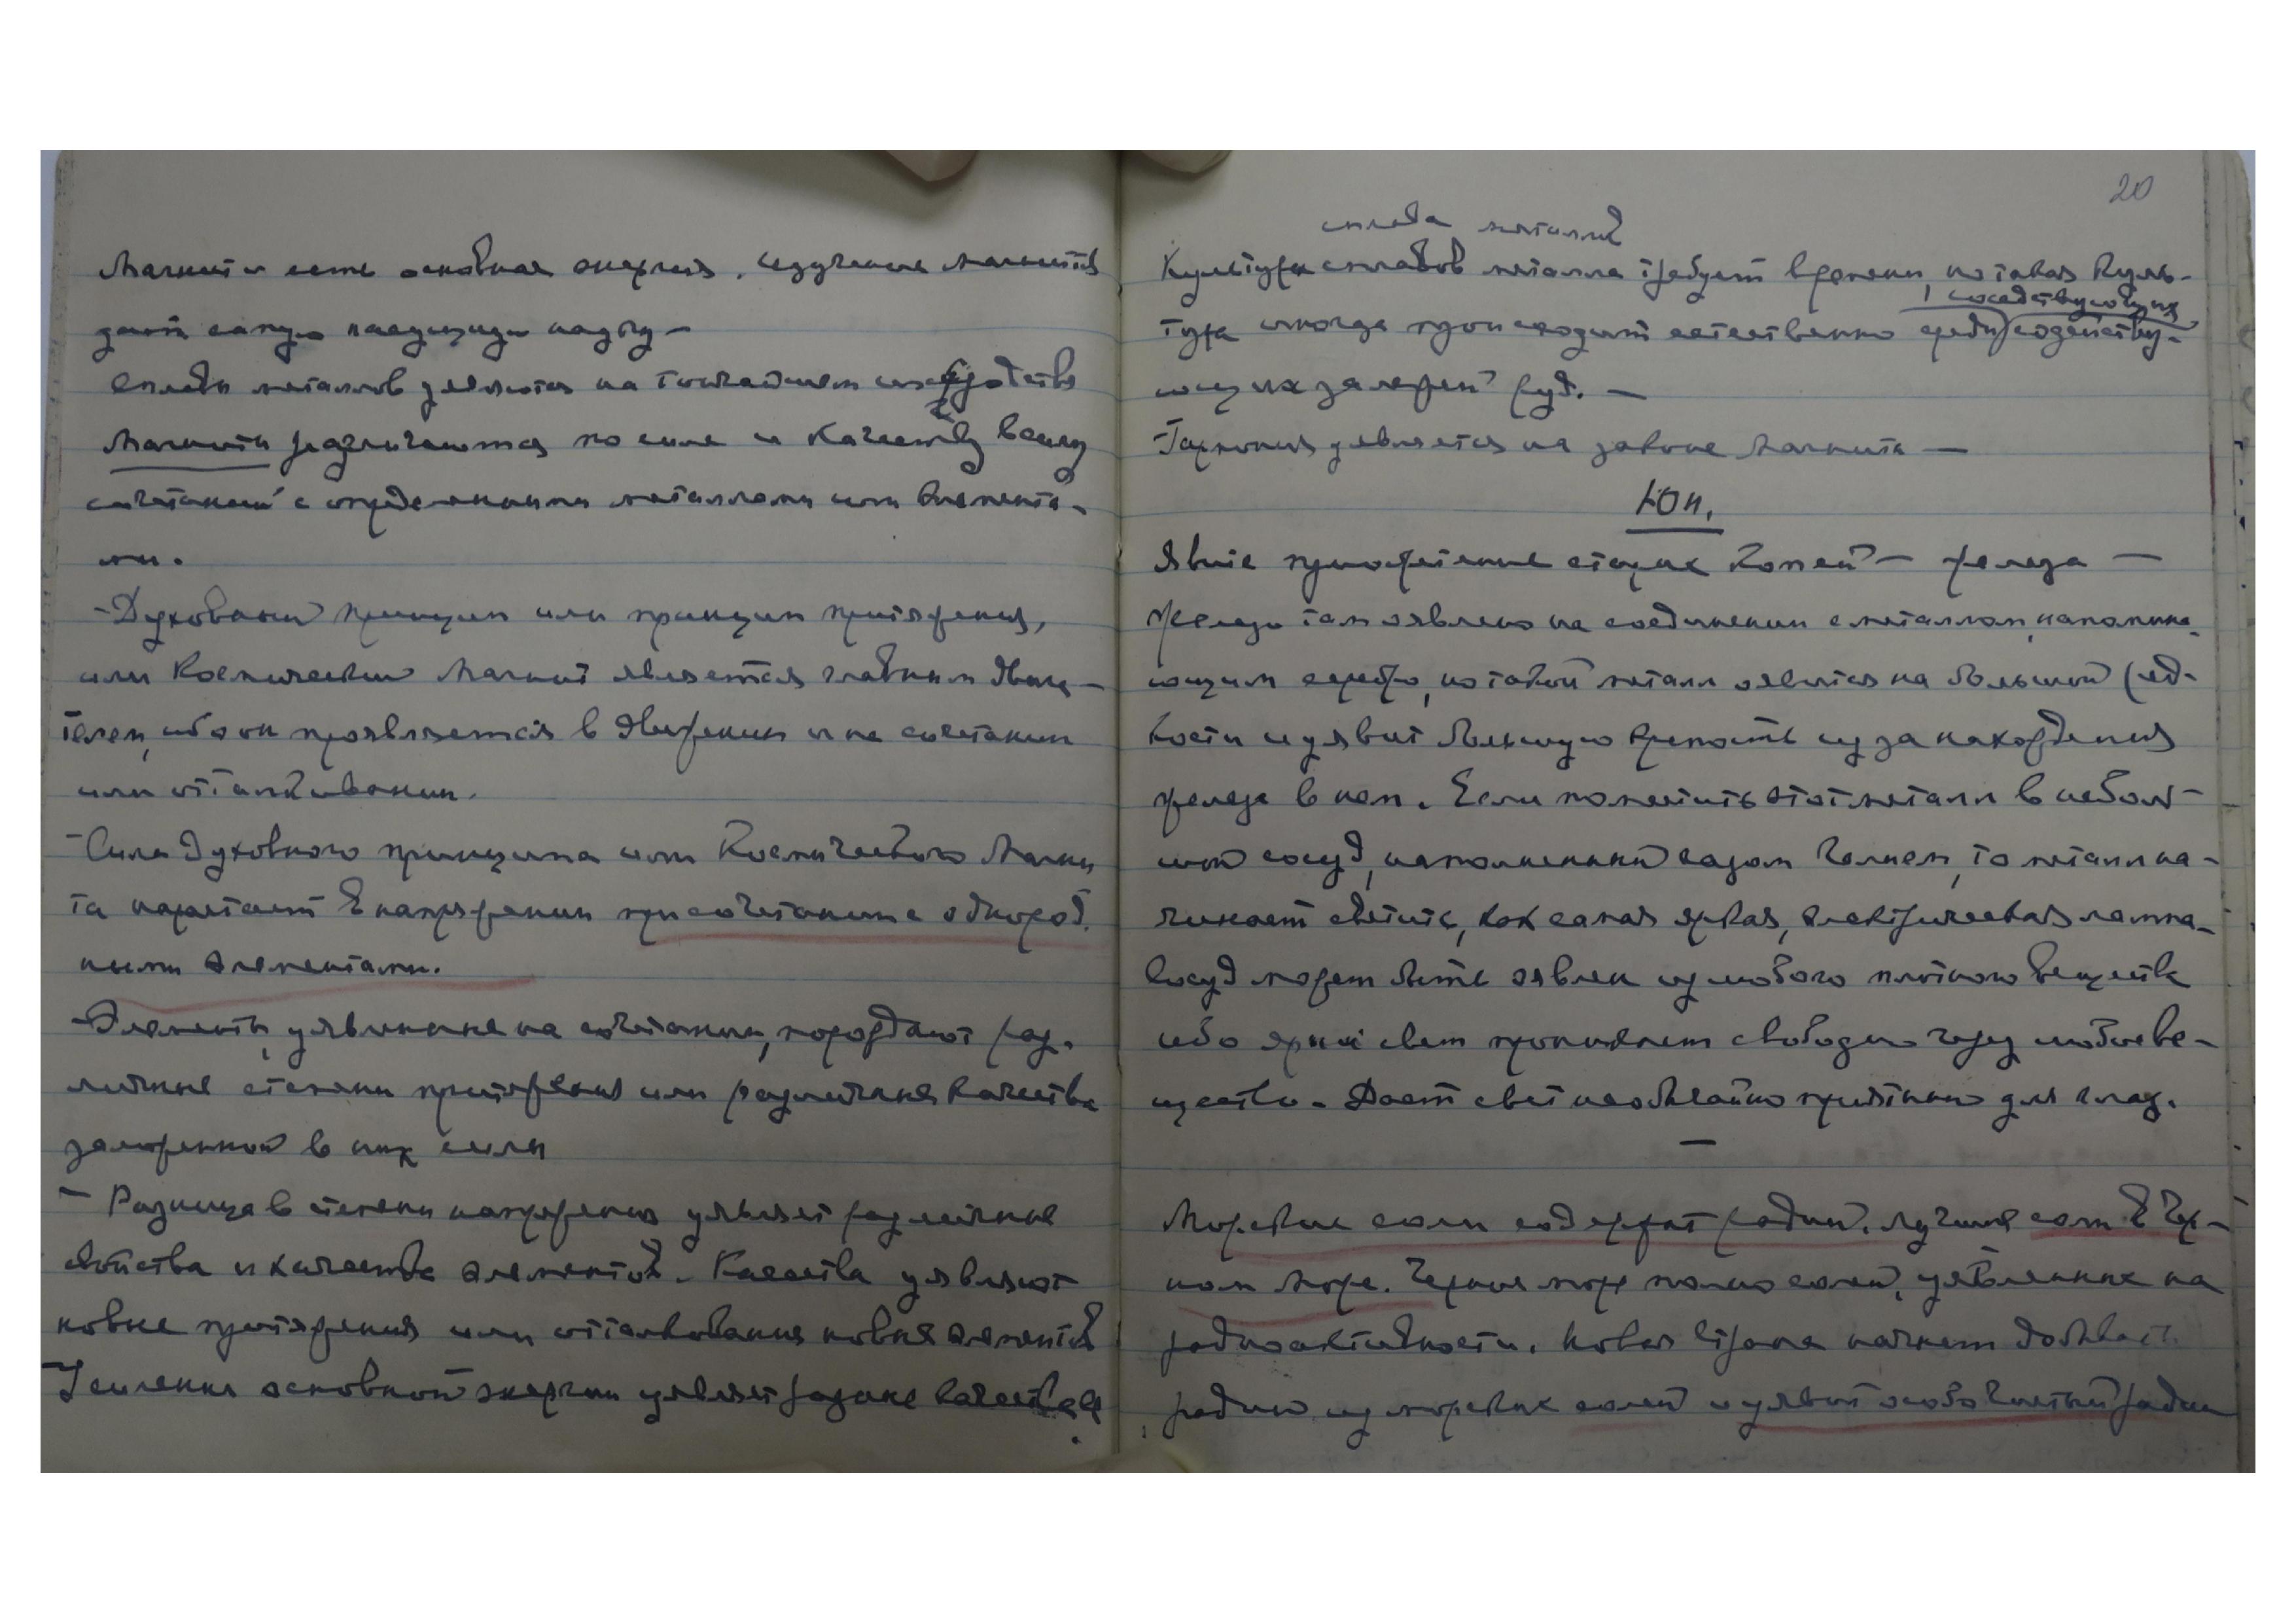 Магнит и есть основная энергия, изучение магнитов
дают самую насущную надобу —
Сплавы металлов уявляются на тончайшем сродстве
Магниты различаются по силе и качеству в силу
сочетаний с определенными металлами или элемента-
ми.
– Духовный принцип или принцип притяжения,
или Космический Магнит является главным двига-
телем, ибо он проявляется в движении и на сочетании
или отталкивании.
– Сила духовного принципа или Космического Магни
та нарастает в напряжении при сочетании с однород.
ными элементами.
– Элементы, уявленные на сочетании, порождают раз.
личные степени притяжения или различные качества
заложенной в них силы
– Разница в степени напряжения уявляет различные
свойства и качества элементов. Качества уявляют
новые притяжения или отталкивания новых элементов
Усиление основной энергии уявляет разные качества ее
20
сплава металлов
Культура сплавов металла требует времени, но такая куль-
соседствующих
тура иногда происходит естественно среди содейству-
ющих залежей руд. —
– Гармония уявляется на законе Магнита —
Юп.
Явите приобретение старых копей — железа —
Железо там оявлено на соединении с металлом, напомина
ющим серебро, но такой металл оявится на большой ред-
кости и уявит большую крепость из за нахождения
железа в нем. Если поместить этот металл в неболь-
шой сосуд, наполненный газом гелием, то металл на-
чинает светить, как самая яркая, электрическая лампа.
Сосуд может быть оявлен из любого плотного вещества
ибо яркий свет проникает свободно через любое ве-
щество. Дает свет необычайно приятный для глаз.
—
Морские соли содержат радий. Лучшие соли в Чер-
ном море. Черное море полно солей, уявленных на
радиоактивности. Новая Страна начнет добывать
радий из морских солей и уявит особо чистый радий